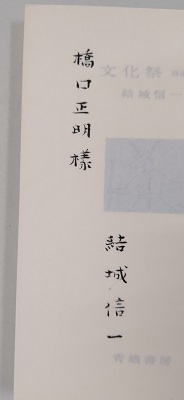 橋口正明様
結城信一
文化祭
結城信一
青娥書房